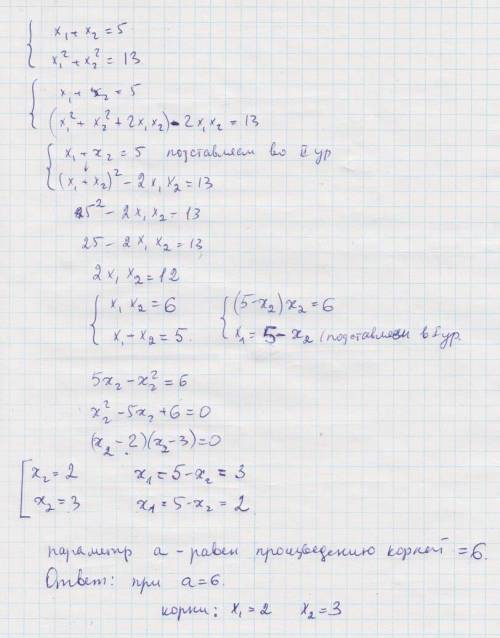 x₁ + x₂ = 5
x₁² + x₂² = 13
x₁ + x₂ = 5
(x₁² + x₂² + 2x₁x₂) - 2x₁x₂ = 13
x₁ + x₂ = 5 подставляем во II ур
(x₁ + x₂)² - 2x₁x₂ = 13
5² - 2x₁x₂ = 13
25 - 2x₁x₂ = 13
2x₁x₂ = 12
x₁x₂ = 6 (5-x₂)x₂ = 6
x₁ + x₂ = 5 x₁ = 5 - x₂ (подставляем в I ур.
5x₂ - x₂² = 6
x₂² - 5x₂ + 6 = 0
(x₂ - 2)(x₂ - 3) = 0
x₂ = 2 x₁ = 5 - x₂ = 3
x₂ = 3 x₁ = 5 - x₂ = 2
параметр a - равен произведению корней = 6.
Ответ: при a = 6.
корни: x₁ = 2 x₂ = 3